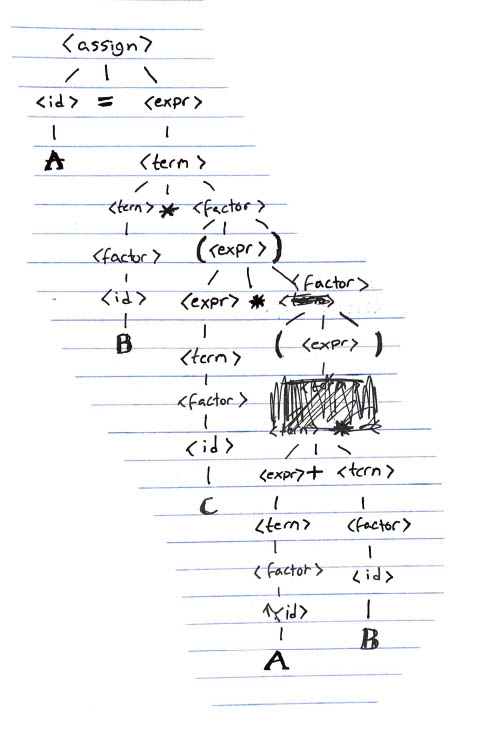 <assign>
<id> = <expr>
A <term>
<tern> * <factor>
<factor> (<expr>)
<factor>
<id> <expr> *
B ( <expr> )
<term>
<factor>
<id>
<expr> + <tern>
C
<tern> <factor>
<factor> <id>
<id> B
A